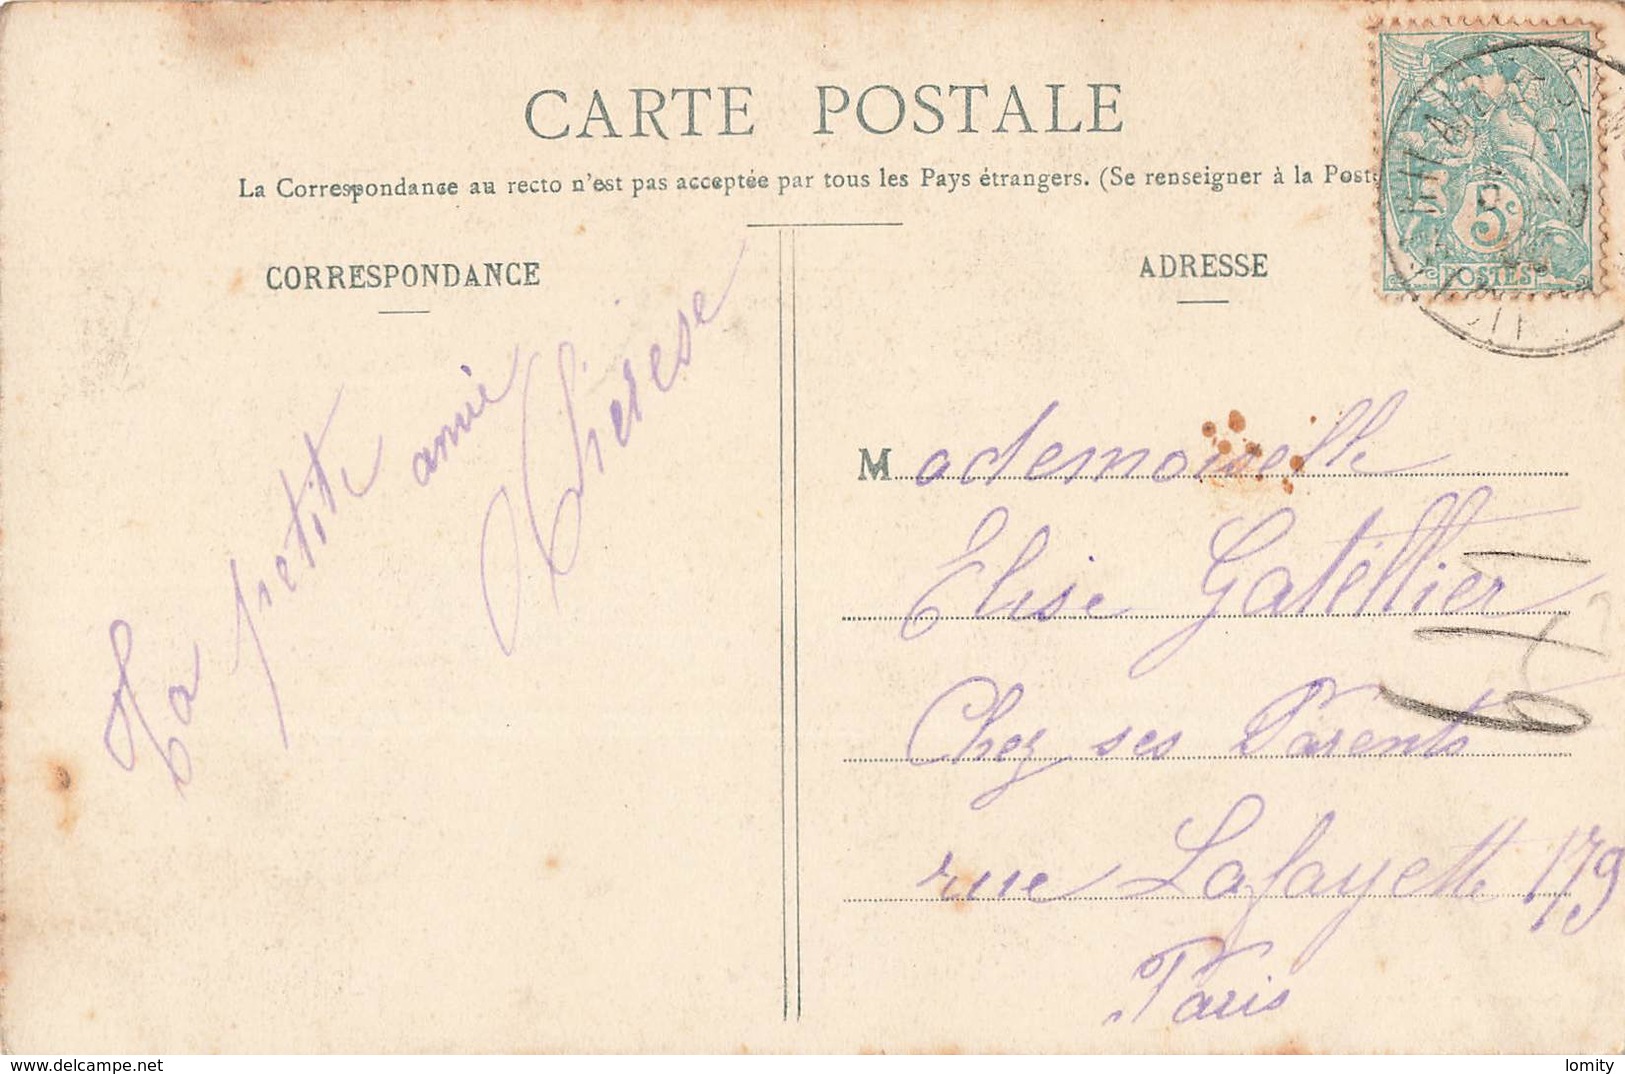 CARTE POSTALE
La Correspondance au recto n'est pas acceptée par tous les Pays étrangers. (Se renseigner à la Poste
CORRESPONDANCE
ADRESSE
5c
POSTES
Ta petite amie
Thérese
Mademoiselle
Elise Gatellier
Chez ses Parents
rue Lafayette 179
Paris
delcampe.net
lomity